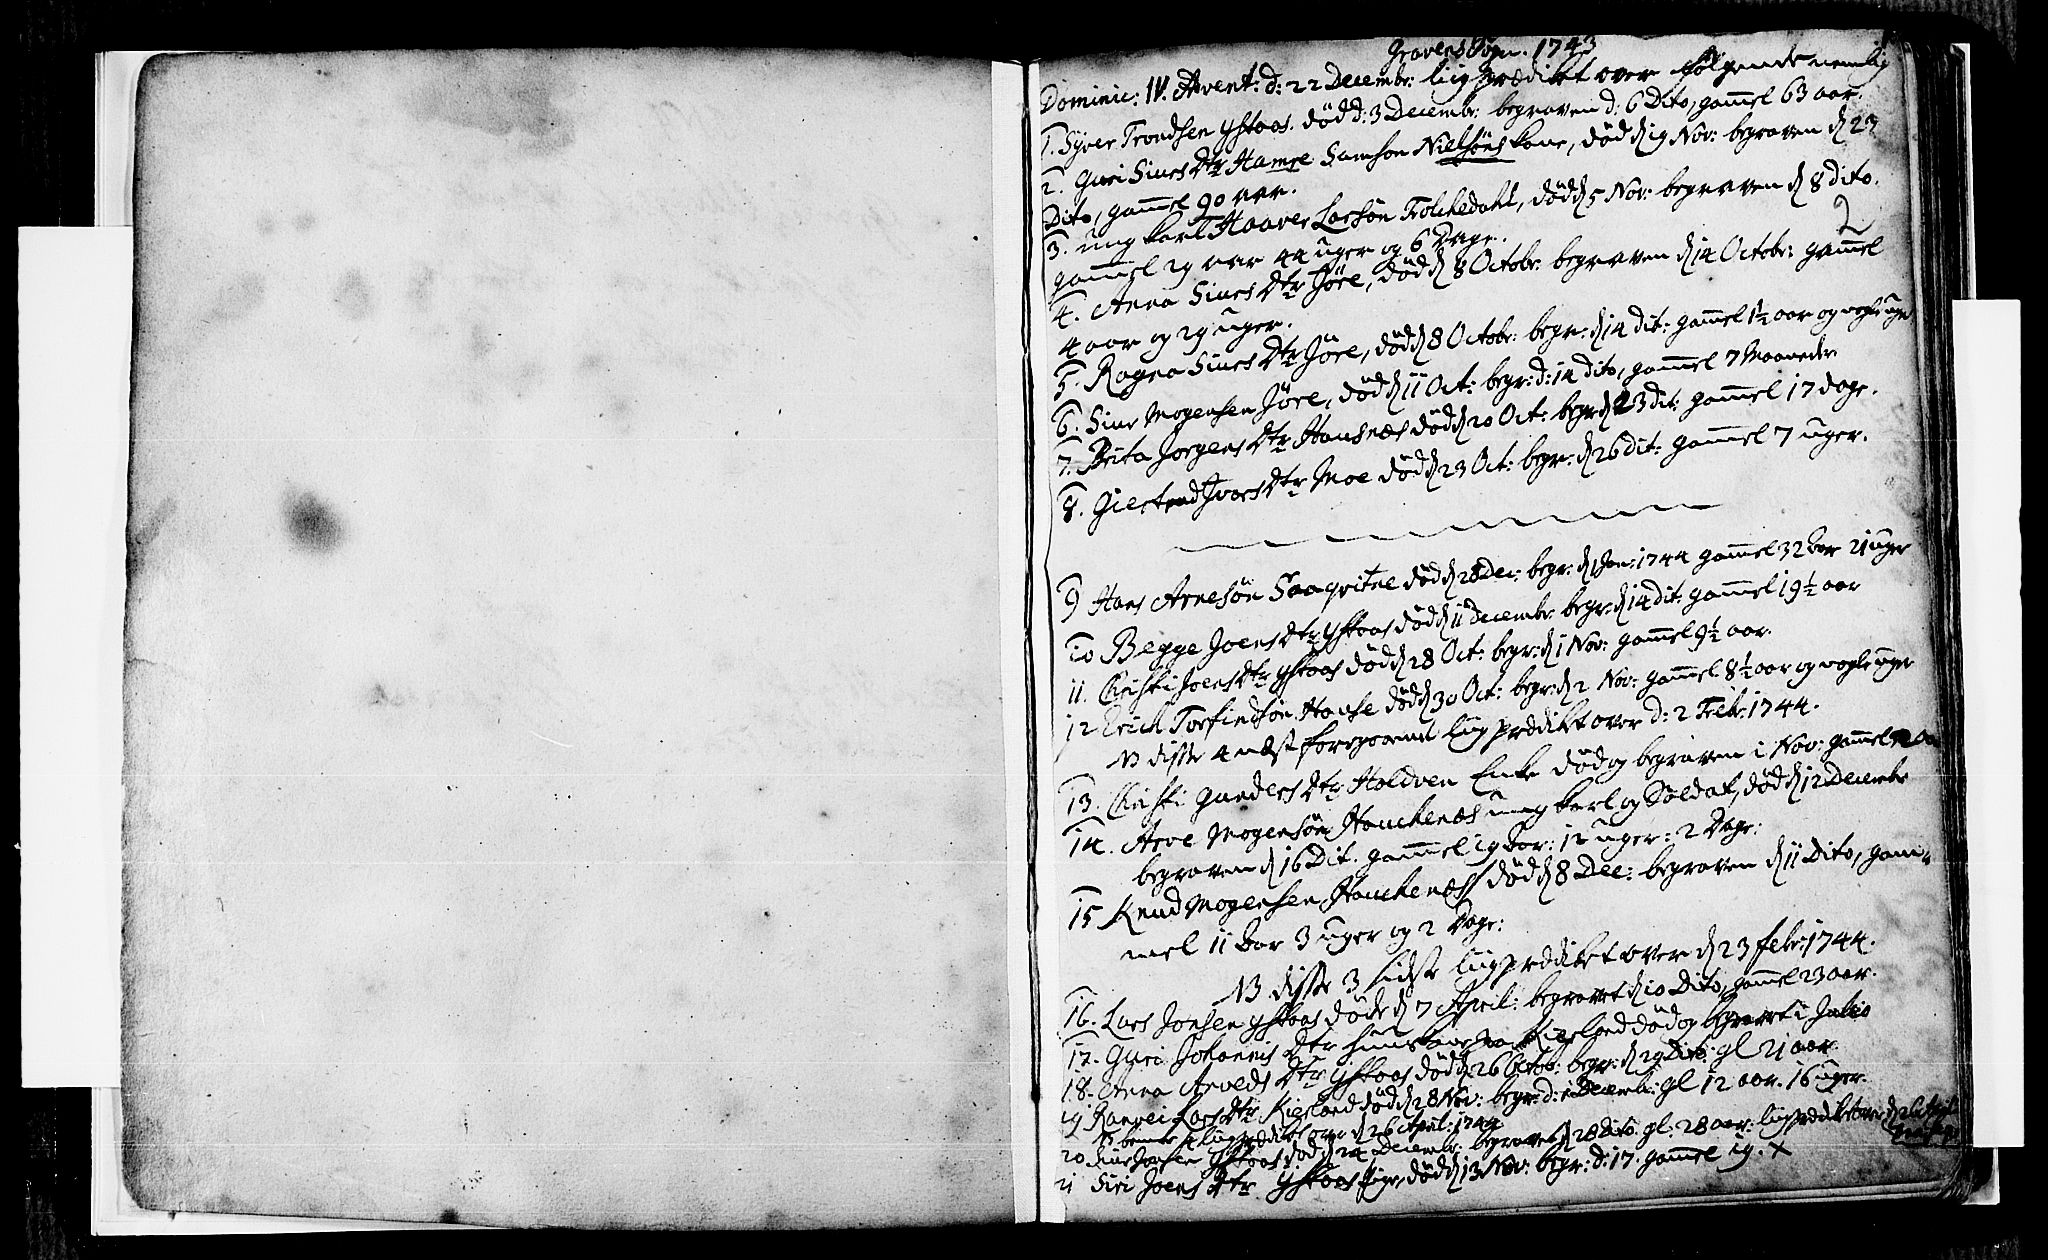 Gravens Sogn. 1743
Dominic: IV. Advent: d: 22 Decembr: liigprædiket over følgende nemlig
1. Syver Trondsen Ystaas. død d: 3 Decembr: begraven d: 6 Dito, gammel 63 aar.
2. Guri Siurs Dtr Hamre Samson Nielsøns kone, død d 19 Nov: begraven d 23
Dito, gammel 90 aar.
3. ung karl Haaver Larsøn Folchedahl, død d 5 Nov: begraven d 8 dito.
2
gammel 29 aar 44 uger og 6 Dage.
4. Anna Siurs Dtr Jøre, død d 8 Octobr: begraven d 14 Octobr: gammel
4 aar og 29 uger.
5. Ragna Siurs Dtr Jøre, død d 8 Octobr: begr: d 14 dit: gammel 1½ aar og nogle uger
6. Siur Mogensen Jøre, død d 11 Oct: begr: d: 14 dito, gammel 7 Maaneder
7. Brita Jorgens Dtr Hansnæs død d 20 Oct: begr: d 23 dit: gammel 17 dage.
8. Giertrud Ivars Dtr Moe død d 23 Oct: begr: d 26 dit: gammel 7 uger.
9 Hans Arnesøn Saaqvitne død d 28 Dec: begr: d 1 Jan: 1744 gammel 32 aar 21 uger
10 Begge Joens Dtr Ystaas død d 11 Decembr: begr: d 14 dit: gammel 19½ aar
11. Christi Joens Dtr Ystaas død d 28 Oct: begr: d 1 Nov: gammel 9½ aar.
12 Erich Torfindsøn Hause død d 30 Oct: begr: d 2 Nov: gammel 8½ aar og nogle uger
NB disse 4 næst foregaaende liigprædiket over d: 2 Febr: 1744.
13. Christi Gunders Dtr Holdven Enke død og begraven i Nov: gammel
14. Arve Mogensøn Hauckenæs ung karl og Soldat, død d 12 Decembr
begraven d 16 Dit. gammel 19 aar: 12 uger: 2 Dage:
15 Knud Mogensen Hauckenæs død d 8 Dec: begraven d 11 Dito, gam-
mel 11 aar 3 uger og 2 Dage:
NB disse 3 sidste liigprædiket over d 23 febr: 1744.
16. Lars Jonsen Ystaas døde d 7 April: begravet d 10 Dito, gammel 23 aar.
17. Guri Johannis Dtr huuskone paa Kiesland død og begravet i Julio
18. Anna Arveds Dtr Ystaas død d 26 Octob: begr: d 29 Dito: gl 21 aar.
19 Ranvei Lars Dtr. Kiesland død d 28 Nov: begr: d: 1 Decemb: gl 12 aar. 16 uger.
NB bemte 4 liigprædiket over d 26 April: 1744
20 Siur Jonsen Ystaas død d 24 Decembr: begravet d 28 Dito. gl: 28 aar. liigprædiket over d 26 April
21 Siri Joens Dtr Ystaas Pige, død d 13 Nov: begr: d: 17. gammel 19. x